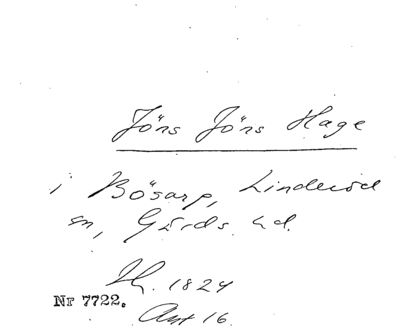 Jöns Jöns Hage
i Bösarp, Linderöd
sn, Gärds hd.
Th. 1824
Nr 7722.
Ant 16